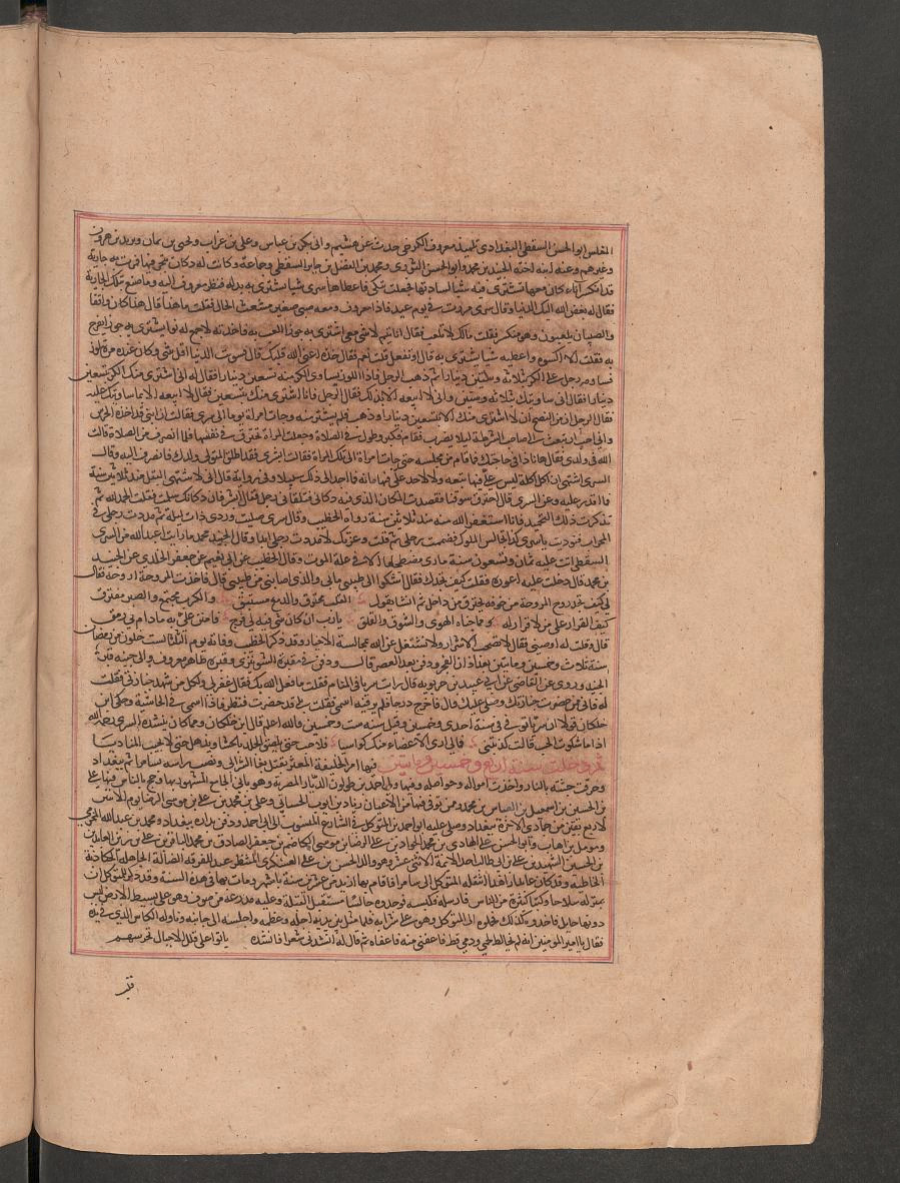 المغلس ابو الحسن السقطي البغدادي تلميذ معروف الكرخي حدث عن هشيم وابي بكر بن عياش وعلي بن غراب ويحيى بن يمان ويزيد بن هرون
وغيرهم وعنه ابن اخته الجنيد بن محمد وابو الحسن النوري ومحمد بن الفضل بن جابر السقطي وجماعة وكانت له دكان يتجر فيها فمرت به جارية
قد انكسر اناء كان معها تشتري فيه شيا لسادتها فجعلت تبكي فاعطاها سري شيا تشتري به بدله فنظر معروف اليه وما صنع بتلك الجارية
فقال له بغض الله اليك الدنيا وقال سري مررت في يوم عيد فاذا معروف ومعه صبي صغير شعث الحال فقلت ما هذا قال هذا كان واقفا
والصبيان يلعبون وهو منكسر فقلت مالك لا تلعب فقال انا يتيم لا شي معي اشتري به جوزا العب به فاخذته لاجمع له نوا يشتري به جوزا يفرح
به فقلت الا اكسوه واعطيه شيا يشتري به قال او تفعل قلت نعم فقال خذه اغنى الله قلبك قال فسويت الدنيا اقل شي وكان عنده مرة لوز
فساومه رجل على الكر بثلاثة وستين دينارا ثم ذهب الرجل فاذا اللوز يساوي الكر منه تسعين دينارا فقال له اني اشتري منك الكر بتسعين
دينارا فقال اني ساومتك بثلاثة وستين واني لا ابيعه الا بذلك فقال الرجل فانا اشتري منك بتسعين فقال لا ابيعه الا بما ساومتك عليه
فقال الرجل ان من النصح ان لا اشتري منك الا بتسعين دينارا وذهب فلم يشتر منه وجات امراة يوما الى سري فقالت ان ابني قد اخذه الحرس
واني احب ان تبعث الى صاحب الشرطة ليلا يضرب فقام فكبر وطول في الصلاة وجعلت المراة تحترق في نفسها فلما انصرف من الصلاة قالت
الله في ولدي فقال ها انا ذا في حاجتك فما قام من مجلسه حتى جات امراة الى تلك المراة فقالت ابشري فقد اطلق المتولي ولدك فانصرف اليه وقال
السري اشتهي ان اكل اكلة ليس لله فيها تبعة ولا لاحد علي فيها منة فما اجد الى ذلك سبيلا وفي رواية قال اني لاشتهي البقل منذ ثلاثين سنة
فما اقدر عليه وعن السري قال احترق سوقنا فقصدت المكان الذي فيه دكاني فتلقاني رجل فقال ابشر فان دكانك سلمت فقلت الحمد لله ثم
تذكرت ذلك التحميد فانا استغفر الله منه منذ ثلاثين سنة رواه الخطيب وقال سري صليت وردي ذات ليلة ثم مددت رجلي في
المحراب فنوديت يا سري كذا تجالس الملوك فضممت رجلي ثم قلت وعزتك لا مددت رجلي ابدا وقال الجنيد محمد ما رايت اعبد لله من السري
السقطي اتت عليه ثمان وتسعون سنة ما رئي مضطجعا الا في علة الموت وقال الخطيب عن ابي نعيم عن جعفر الخلدي عن الجنيد
بن محمد قال دخلت عليه اعوده فقلت كيف تجدك فقال اشكو الى طبيبي ما بي والذي اصابني من طبيبي قال فاخذت المروحة اروحه فقال
لي كيف يجد روح المروحة من جوفه يحترق من داخل ثم انشا يقول القلب محترق والدمع مستبق والكرب مجتمع والصبر مفترق
كيف القرار على من لا قرار له مما جناه الهوى والشوق والقلق يا رب ان كان شي فيه لي فرج فامنن علي به ما دام بي رمق
قال وقلت له اوصني فقال لا تصحب الاشرار ولا تشتغل عن الله بمجالسة الاخيار وقد ذكر الخطيب وفاته يوم الثلثا لست خلون من رمضان
سنة ثلاث وخمسين ومايتين بعد اذان الفجر ودفن بعد العصر قالت ودفن في مقبرة الشونيزي وقبره ظاهر معروف والى جنبه قبر
الجنيد وروي عن القاضي عن ابي عبيد بن حربويه قال رايت سريا في المنام فقلت ما فعل الله بك فقال غفر لي ولكل من شهد جنازتي فقلت
له فاني ممن حضر جنازتك وصلى عليك قال فاخرج درجا فلم ير فيه اسمي فقلت بلى قد حضرت فنظر فاذا اسمي في الحاشية وحكى ابن
خلكان قولا ان سريا توفي في سنة احدى وخمسين وقيل سنة ست وخمسين والله اعلم قال ابن خلكان ومما كان ينشده السري رحمه الله
اذا ما شكوت الحب قالت كذبتني فما لي ارى الاعضاء منك كواسيا فلا حب حتى يلصق الجلد بالحشا وتذهل حتى لا تجيب المناديا
ثم دخلت سنة اربع وخمسين ومايتين فيها امر الخليفة المعتز بقتل بغا الشرابي ونصب راسه بسامرا ثم ببغداد
وحرقت جثته بالنار واخذت امواله وحواصله وفيها ولي احمد بن طولون الديار المصرية وهو باني الجامع المشهور بها وحج بالناس فيها علي
بن الحسين بن اسمعيل بن العباس بن محمد وممن توفي فيها من الاعيان زياد بن ايوب الحساني وعلي بن محمد بن علي بن موسى الرضا يوم الاثنين
لاربع بقين من جمادى الاخرة ببغداد وصلى عليه ابو احمد بن المتوكل في الشارع المنسوب الى ابي احمد ودفن بداره ببغداد ومحمد بن عبد الله المخرمي
ومومل بن اهاب وابو الحسن علي الهادي بن محمد الجواد بن علي الرضا بن موسى الكاظم بن جعفر الصادق بن محمد الباقر بن علي بن زين العابدين
بن الحسين الشهيد بن علي بن ابي طالب احد الائمة الاثني عشر وهو والد الحسن بن علي العسكري المنتظر عند الفرقة الضالة الجاهلة الكاذبة
الخاطية وقد كان عابدا زاهدا نقله المتوكل الى سامرا فاقام بها ازيد من عشرين سنة باشهر ومات بها في هذه السنة وقد ذكر للمتوكل ان
بمنزله سلاحا وكتبا كثيرة من الناس فارسل فكبسه فوجدوه جالسا مستقبل القبلة وعليه مدرعة من صوف وهو على بسيط الارض ليس
دونها حايل فاخذوه كذلك فحملوه الى المتوكل وهو على شرابه فلما مثل بين يديه اجله وعظمه واجلسه الى جانبه وناوله الكاس الذي في يده
فقال يا امير المومنين انه لم يخالط لحمي ودمي قط فاعفني منه فاعفاه ثم قال له انشدني شعرا فانشده باتوا على قلل الاجبال تحرسهم